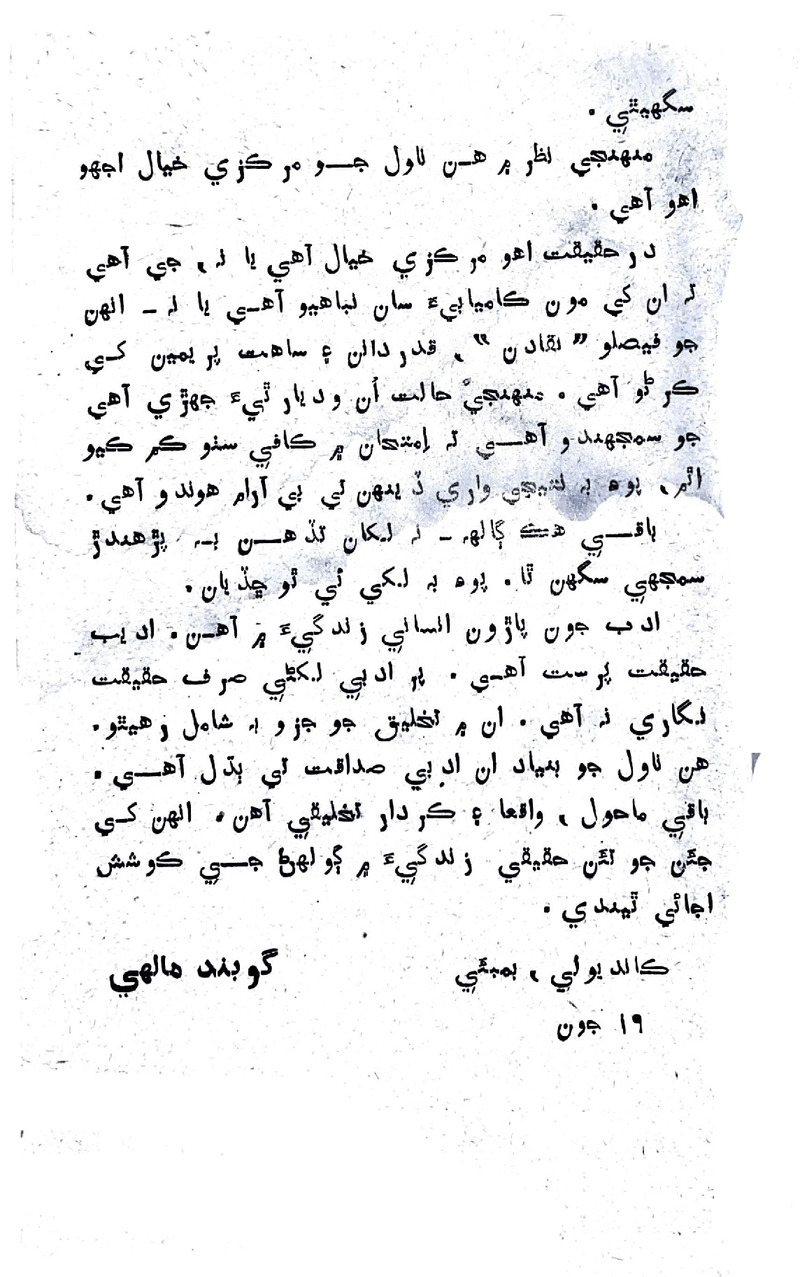 سگهيٿي .
منهنجي نظر ۾ هن ناول جو مرڪزي خيال اجهو
اهو آهي .
درحقيقت اهو مرڪزي خيال آهي يا نہ، جي آهي
تہ ان کي مون ڪاميابيءَ سان نباهيو آهي يا نہ ـ انهن
جو فيصلو ”نقادن“، قدردانن ۽ ساهت پريمين کي
ڪرڻو آهي . منهنجي حالت اُن وديارٿيءَ جهڙي آهي
جو سمجهندو آهي تہ اِمتحان ۾ ڪافي سٺو ڪم ڪيو
اٿم، پوءِ بہ نتيجي واري ڏينهن تي بي آرام هوندو آهي .
باقي هڪ ڳالهہ ـ نہ لکان تڏهن بہ پڙهندڙ
سمجهي سگهن ٿا . پوءِ بہ لکي ئي ٿو ڇڏيان .
ادب جون پاڙون انساني زندگيءَ ۾ آهن . اديب
حقيقت پرست آهي . پر ادبي لکڻي صرف حقيقت
نگاري نہ آهي . ان ۾ تخليق جو جزو بہ شامل رهيٿو .
هن ناول جو بنياد ان ادبي صداقت تي ٻڌل آهي .
باقي ماحول، واقعا ۽ ڪردار تخليقي آهن . انهن کي
جئن جو تئن حقيقي زندگيءَ ۾ ڳولهڻ جي ڪوشش
اجائي ٿيندي .
ڪانديولي، بمبئي
گوبند مالهي
١٩ جون